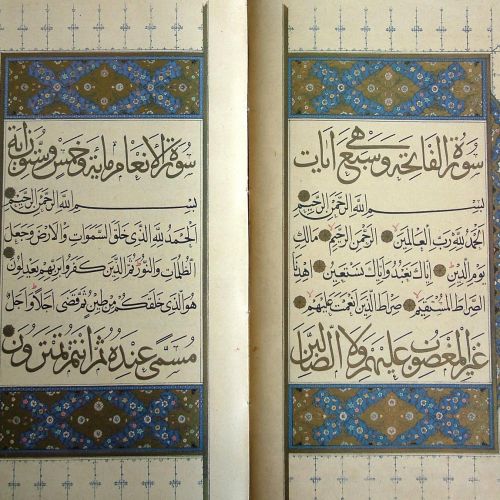 سُورَةُ الْفَاتِحَةِ وَهِيَ سَبْعُ اٰيَاتٍ
بِسْمِ اللّٰهِ الرَّحْمٰنِ الرَّحِيمِ
اَلْحَمْدُ لِلّٰهِ رَبِّ الْعَالَمِينَ الرَّحْمٰنِ الرَّحِيمِ مَالِكِ
يَوْمِ الدِّينِ اِيَّاكَ نَعْبُدُ وَاِيَّاكَ نَسْتَعِينُ اِهْدِنَا
الصِّرَاطَ الْمُسْتَقِيمَ صِرَاطَ الَّذِينَ اَنْعَمْتَ عَلَيْهِمْ
غَيْرِ الْمَغْضُوبِ عَلَيْهِمْ وَلَا الضَّالِّينَ
سُورَةُ الْاَنْعَامِ مِايَةٌ وَخَمْسٌ وَسِتُّونَ اٰيَةً
بِسْمِ اللّٰهِ الرَّحْمٰنِ الرَّحِيمِ
اَلْحَمْدُ لِلّٰهِ الَّذِي خَلَقَ السَّمٰوَاتِ وَالْاَرْضَ وَجَعَلَ
الظُّلُمَاتِ وَالنُّورَ ثُمَّ الَّذِينَ كَفَرُوا بِرَبِّهِمْ يَعْدِلُونَ
هُوَ الَّذِي خَلَقَكُمْ مِنْ طِينٍ ثُمَّ قَضٰى اَجَلًا وَاَجَلٌ
مُسَمًّى عِنْدَهُ ثُمَّ اَنْتُمْ تَمْتَرُونَ